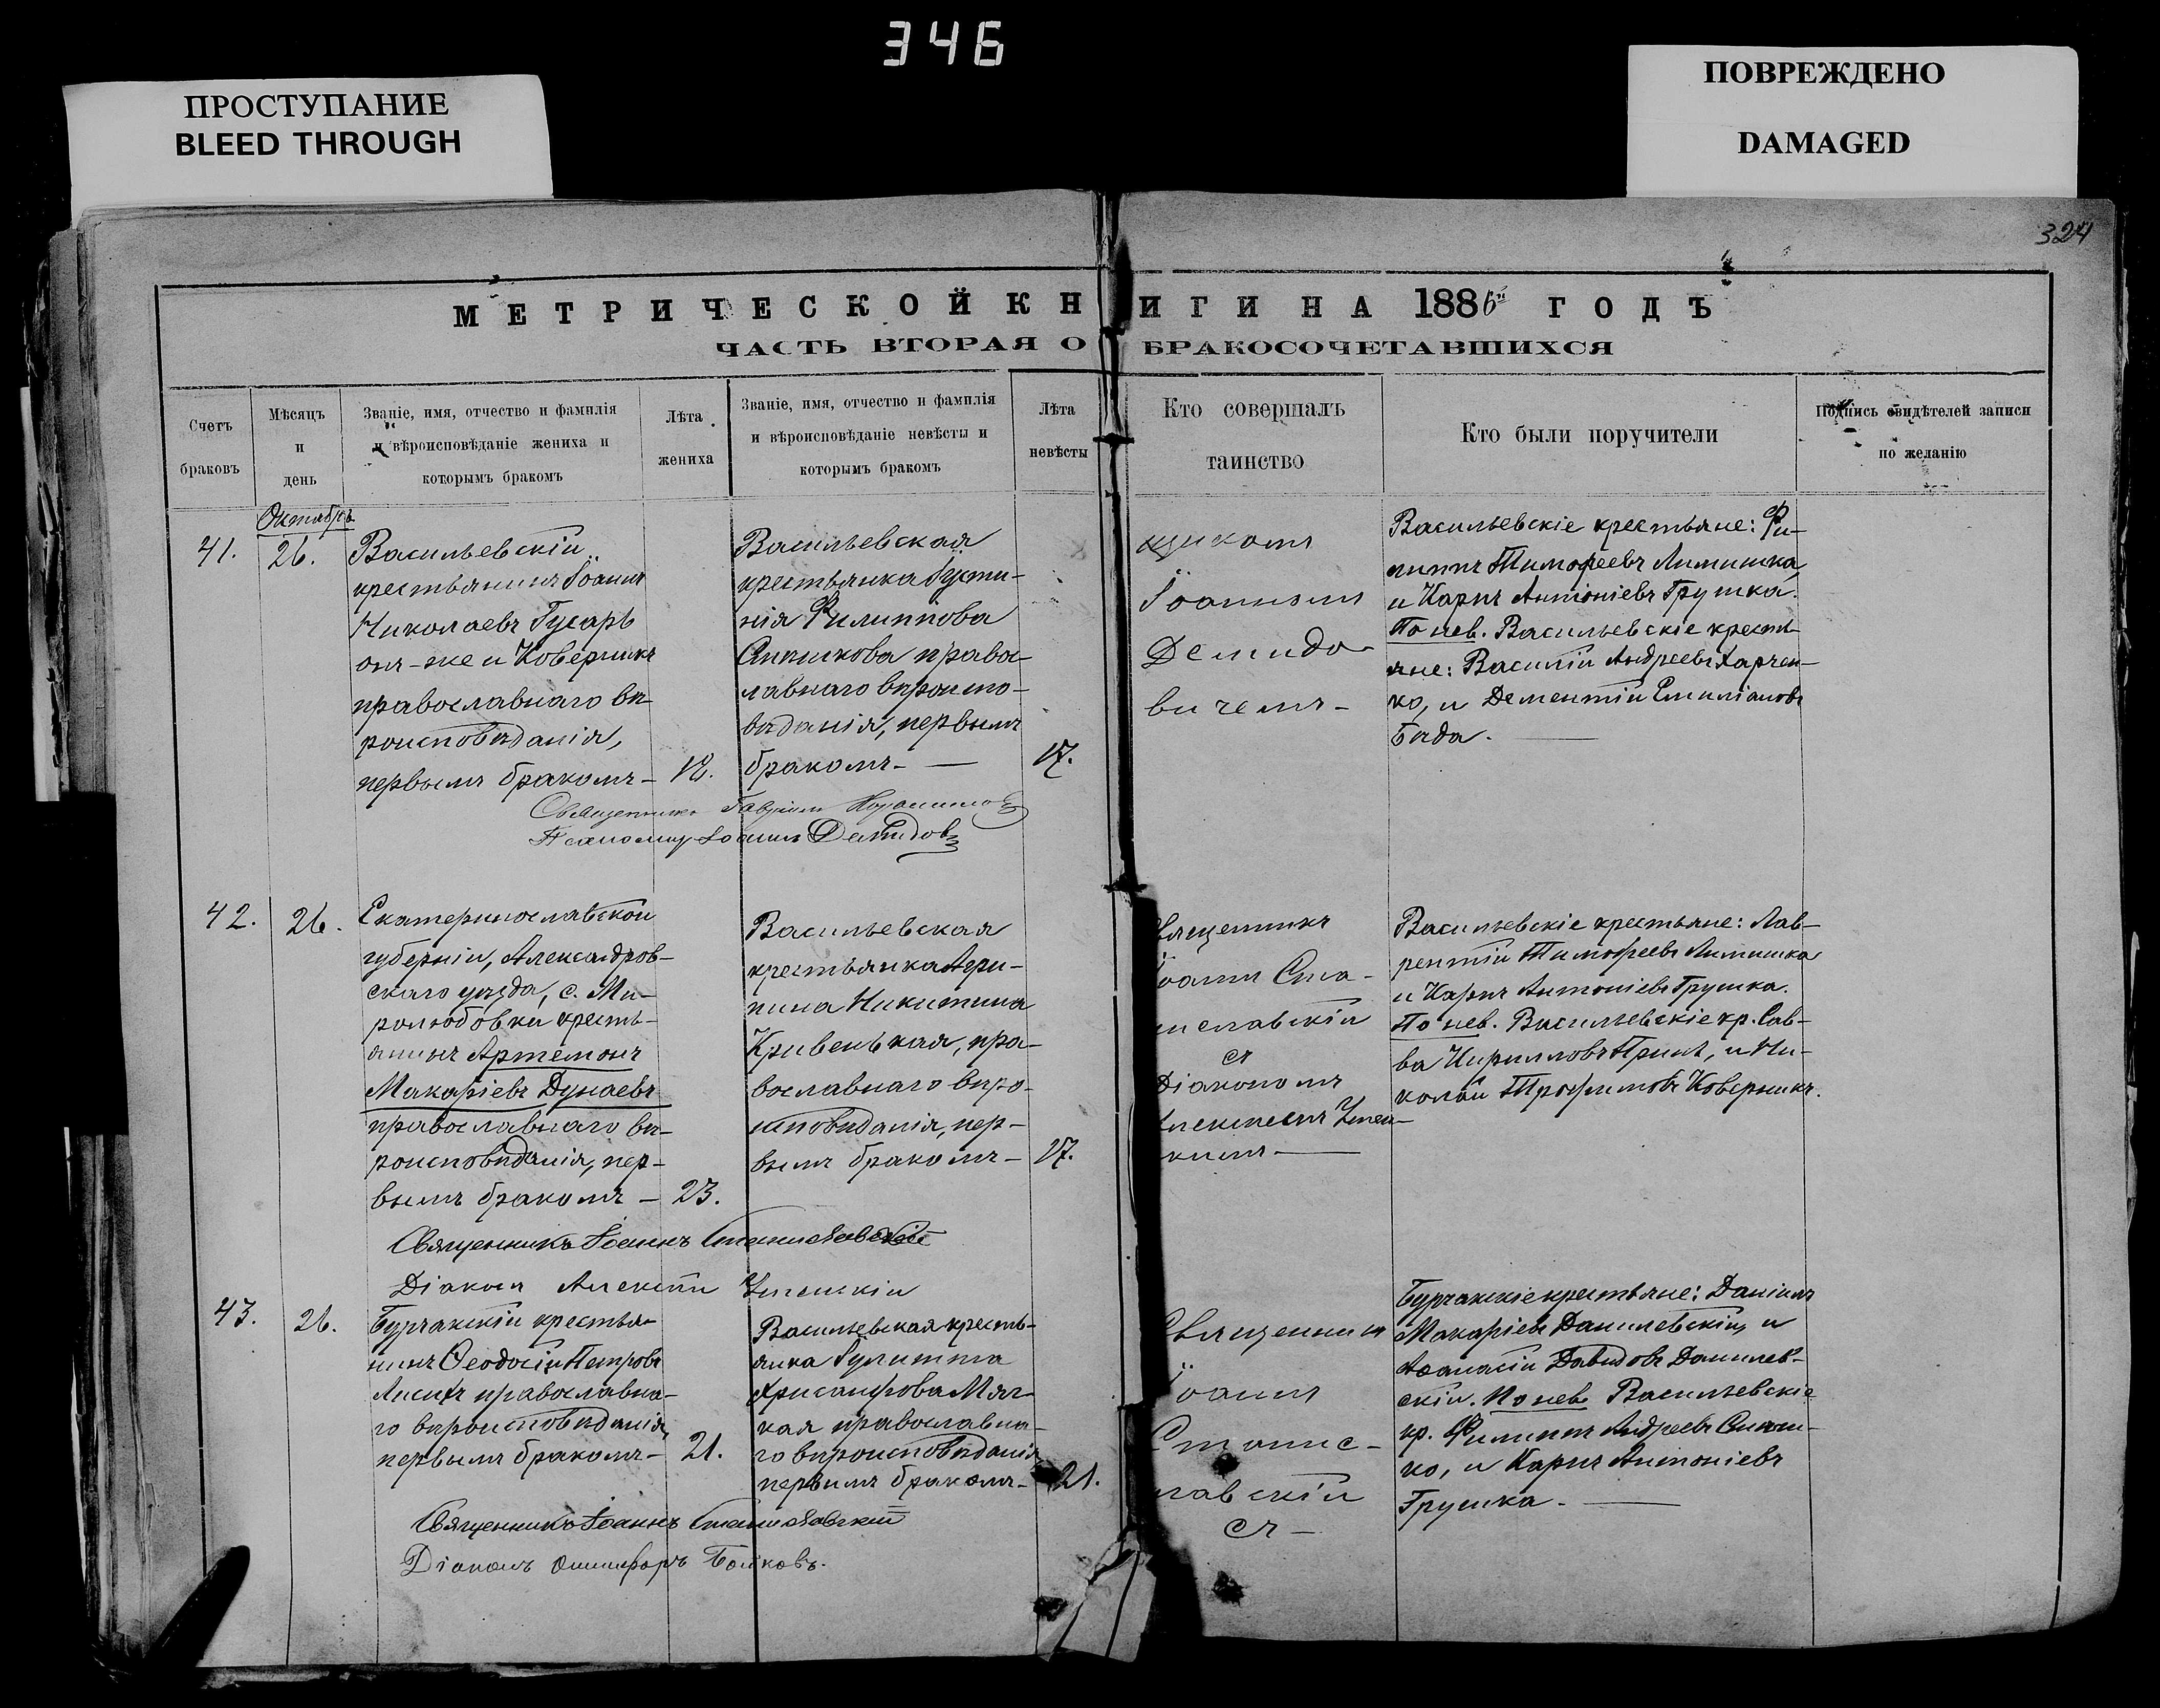 346
ПРОСТУПАНИЕ
BLEED THROUGH
ПОВРЕЖДЕНО
DAMAGED
324
МЕТРИЧЕСКОЙ КНИГИ НА 1886й ГОДЪ
ЧАСТЬ ВТОРАЯ О БРАКОСОЧЕТАВШИХСЯ
Счетъ
браковъ
Мѣсяцъ
и
день
Званіе, имя, отчество и фамилія
и вѣроисповѣданіе жениха и
которымъ бракомъ
Лѣта
жениха
Званіе, имя, отчество и фамилія
и вѣроисповѣданіе невѣсты и
которымъ бракомъ
Лѣта
невѣсты
Кто совершалъ
таинство
Кто были поручители
Подпись свидѣтелей записи
по желанію
41.
Октябрь
26.
Васильевскій
крестьянинъ Іоаннъ
Николаевъ Гусарь
онъ-же и Коверникъ
православнаго вѣ-
роисповѣданія,
первымъ бракомъ-
18.
Васильевская
крестьянка Іусти-
нія Филиппова
православ-
лавнаго вѣроиспо-
вѣданія, первымъ
бракомъ-
17.
Іоанномъ
Демидо-
вичемъ-
Васильевскіе крестьяне: Фи-
липпъ Тимофеевъ Литишка,
и Карпъ Антоніевъ Грушка.
По нев. Васильевскіе кресть-
яне: Василій Андреевъ Харчен-
ко, и Дементій Емиліановъ
Бѣда.
Священникъ Гавріилъ
Іоаннъ Демидов
42.
26.
Екатеринославской
губерніи, Александров-
скаго уѣзда, с. Ми-
ролюбовки кресть-
янинъ Артемонъ
Макаріевъ Дунаевъ
православнаго вѣ-
роисповѣданія, пер-
вымъ бракомъ-
23.
Васильевская
крестьянка Агри-
пина Никитина
Кривенькая, пра-
вославнаго вѣро-
исповѣданія, пер-
вымъ бракомъ-
17.
вященникъ
оаннъ Ста-
ниславскій
съ
Діакономъ
Успен-
скимъ
Васильевскіе крестьяне: Лав-
рентій Тимофеевъ Литишка
и Карпъ Антоніевъ Грушка.
По нев. Васильевскіе кр. Сав-
ва Кирилловъ и Ни-
колай Трофимовъ Коверникъ.
Священникъ Іоаннъ Станиславскій
Діаконъ Алексѣй Успенскій
43.
26.
Бурчакскій крестья-
нинъ Ѳеодосій Петровъ
православна-
го вѣроисповѣданія,
первымъ бракомъ-
21.
Васильевская кресть-
янка Іулитта
Хрисанфова Мяг-
кая православна-
го вѣроисповѣданія
первымъ бракомъ-
21.
Священникъ
Іоаннъ
Станис-
лавскій
съ-
Бурчакскіе крестьяне: Даніилъ
Макаріевъ Данилевскій, и
Аѳанасій Давидовъ Данилев-
скій. По нев. Васильевскіе
кр. Филиппъ Андреевъ
ко, и Карпъ Антоніевъ
Грушка.
Священникъ Іоаннъ Станиславскій
Діаконъ Онисифоръ Бойковъ.